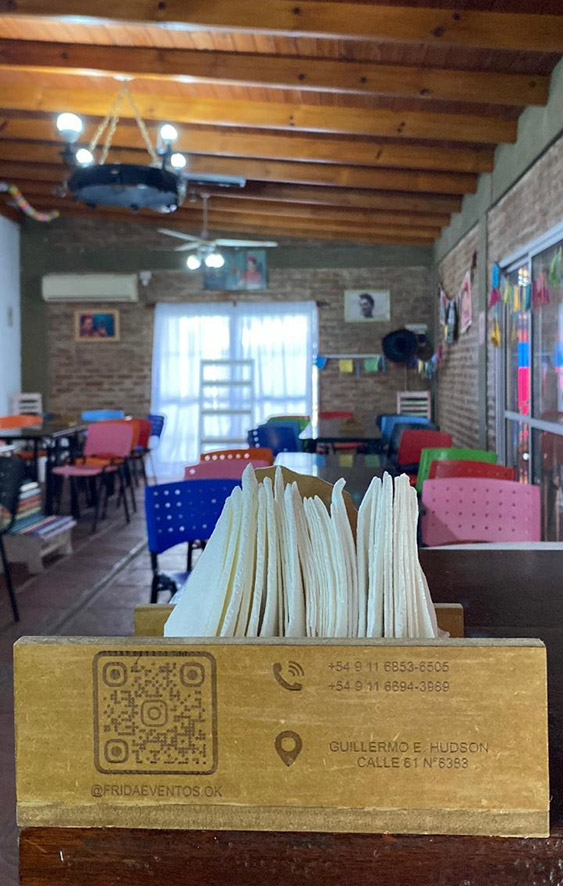 +54 9 11 6853-6505
+54 9 11 6694-3969
GUILLERMO E. HUDSON
CALLE 61 N°6383
@FRIDAEVENTOS.OK